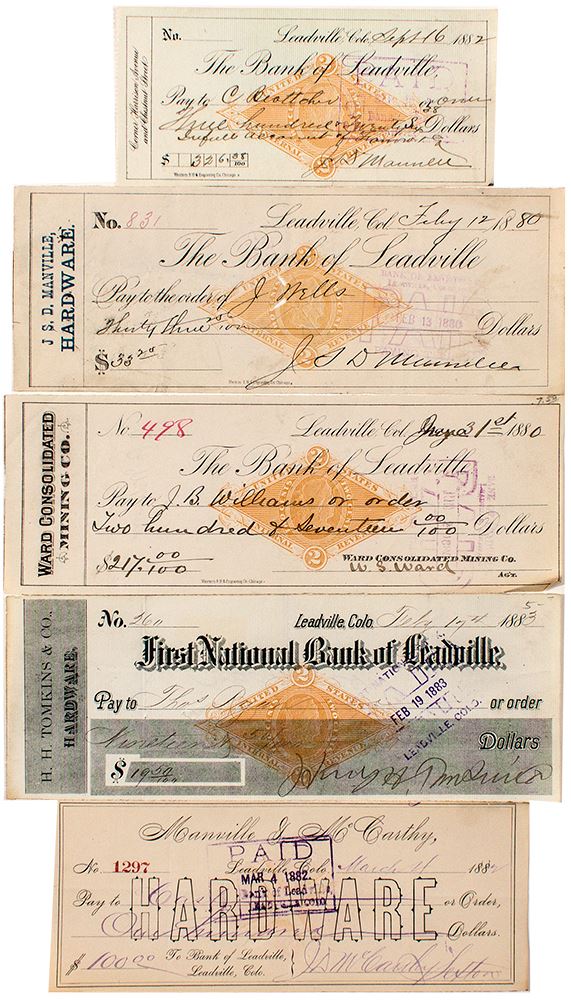 No. Leadville Colo. Sept 16 1882
Corner Harrison Avenue
and Chestnut Street
The Bank of Leadville,
PAID
Pay to C Boettcher or order
Three hundred & Twenty Six 38 Dollars
in full account of
$ 326.38/100 J S D Manville
Western B N & Engraving Co. Chicago.
J S. D. MANVILLE,
HARDWARE.
No. 831 Leadville, Col. Feby 12 1880
The Bank of Leadville
UNITED STATES
INTERNAL REVENUE
2
BANK OF LEADVILLE
PAID
FEB 13 1880
Pay to the order of J Wells
Thirty three 25/100 Dollars
$33 25 J S D Manville
WARD CONSOLIDATED
MINING CO.
7.53
No. 498 Leadville Col. 31st 1880
The Bank of Leadville
UNITED STATES
INTERNAL REVENUE
2
Pay to J. B. Williams or order
Two hundred & Seventeen 00/100 Dollars
$217.00/100 WARD CONSOLIDATED MINING CO.
W. S. Ward
AGT.
Western B N & Engraving Co. Chicago.
H. H. TOMKINS & CO.,
HARDWARE.
No. 260 Leadville, Colo. Feby 1883
First National Bank of Leadville
UNITED STATES
INTERNAL REVENUE
2
Pay to Thos or order
FEB 19 1883
LEADVILLE, COLO.
Nineteen Dollars
$ 19 50/100
Manville & McCarthy,
No. 1297 Leadville, Colo. March 1882
PAID
MAR 4 1882
HARDWARE
Pay to or Order,
One hundred Dollars.
$100.00 To Bank of Leadville,
Leadville, Colo.